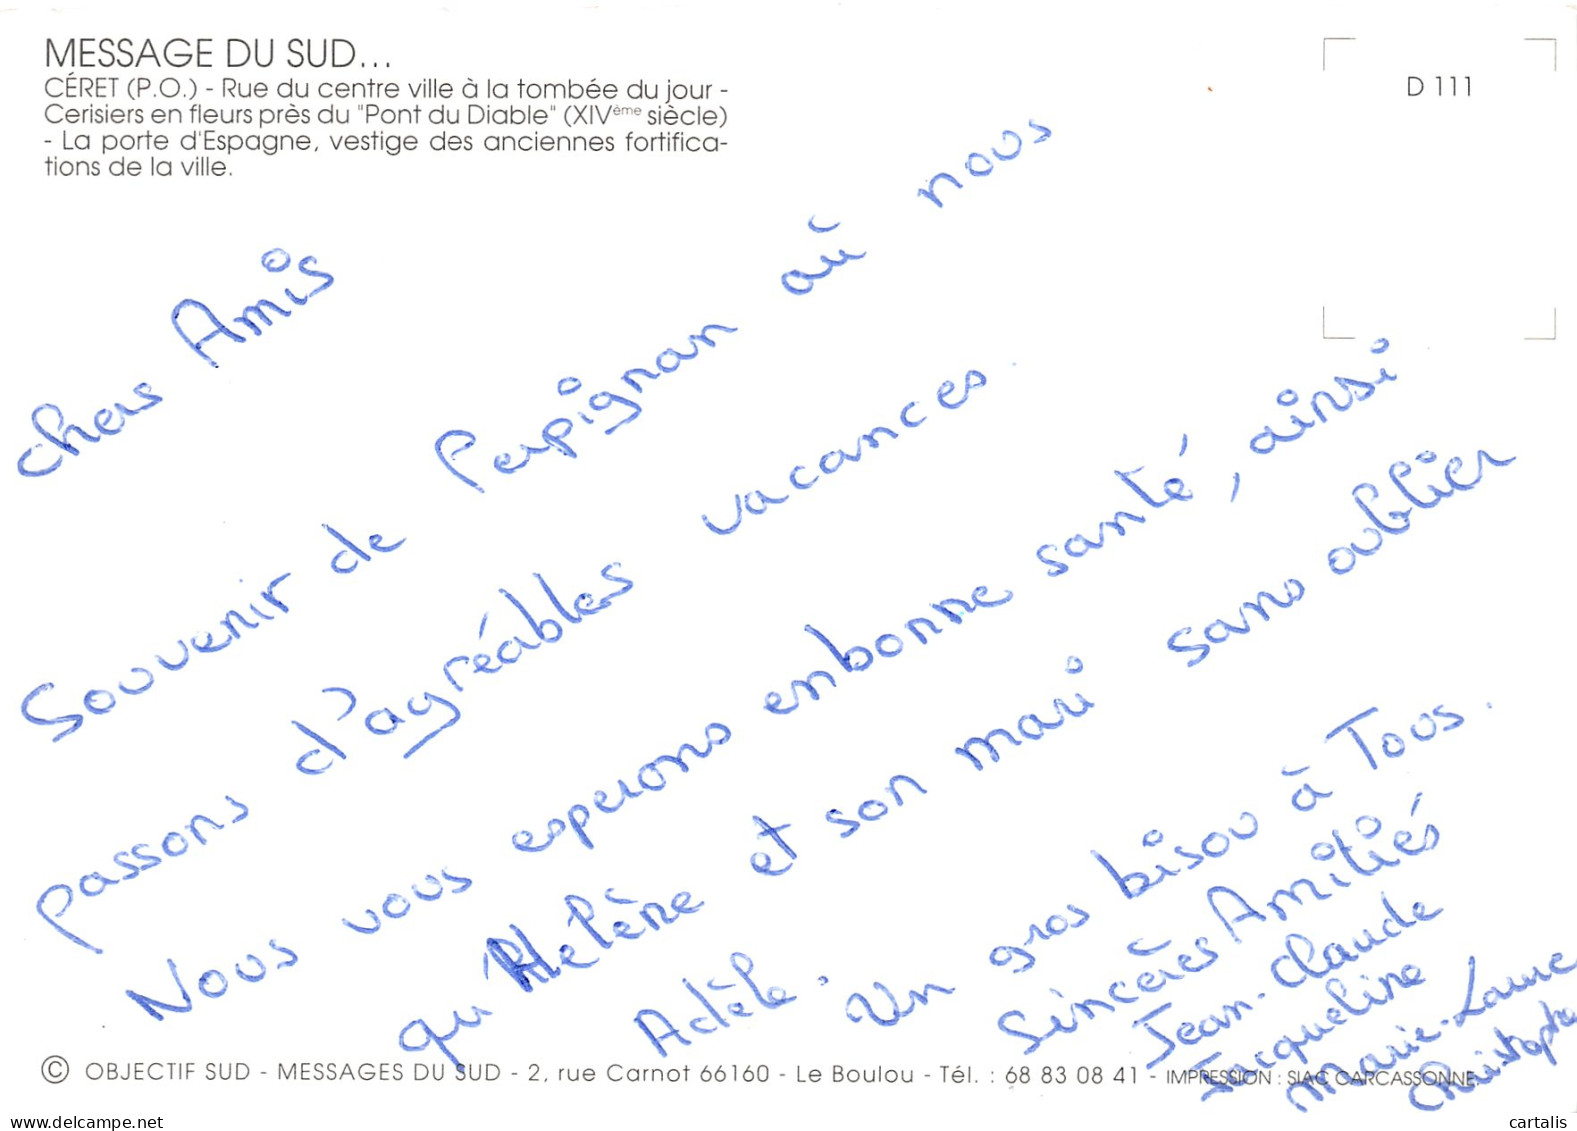 MESSAGE DU SUD...
CÉRET (P.O.) - Rue du centre ville à la tombée du jour -
Cerisiers en fleurs près du "Pont du Diable" (XIVème siècle)
- La porte d'Espagne, vestige des anciennes fortifica-
tions de la ville.
D 111
chers Amis
Souvenir de Perpignan où nous
passons d'agréables vacances.
Nous vous esperons enbonne santé, ainsi
qu'Helène et son mari sans oublier
Adèle. Un gros bisou à Tous.
Sincères Amitiés
Jean-Claude
Jacqueline
Marie-Laure
Christophe
© OBJECTIF SUD - MESSAGES DU SUD - 2, rue Carnot 66160 - Le Boulou - Tél. : 68 83 08 41 - IMPRESSION : SIAC CARCASSONNE
www.delcampe.net
cartalis